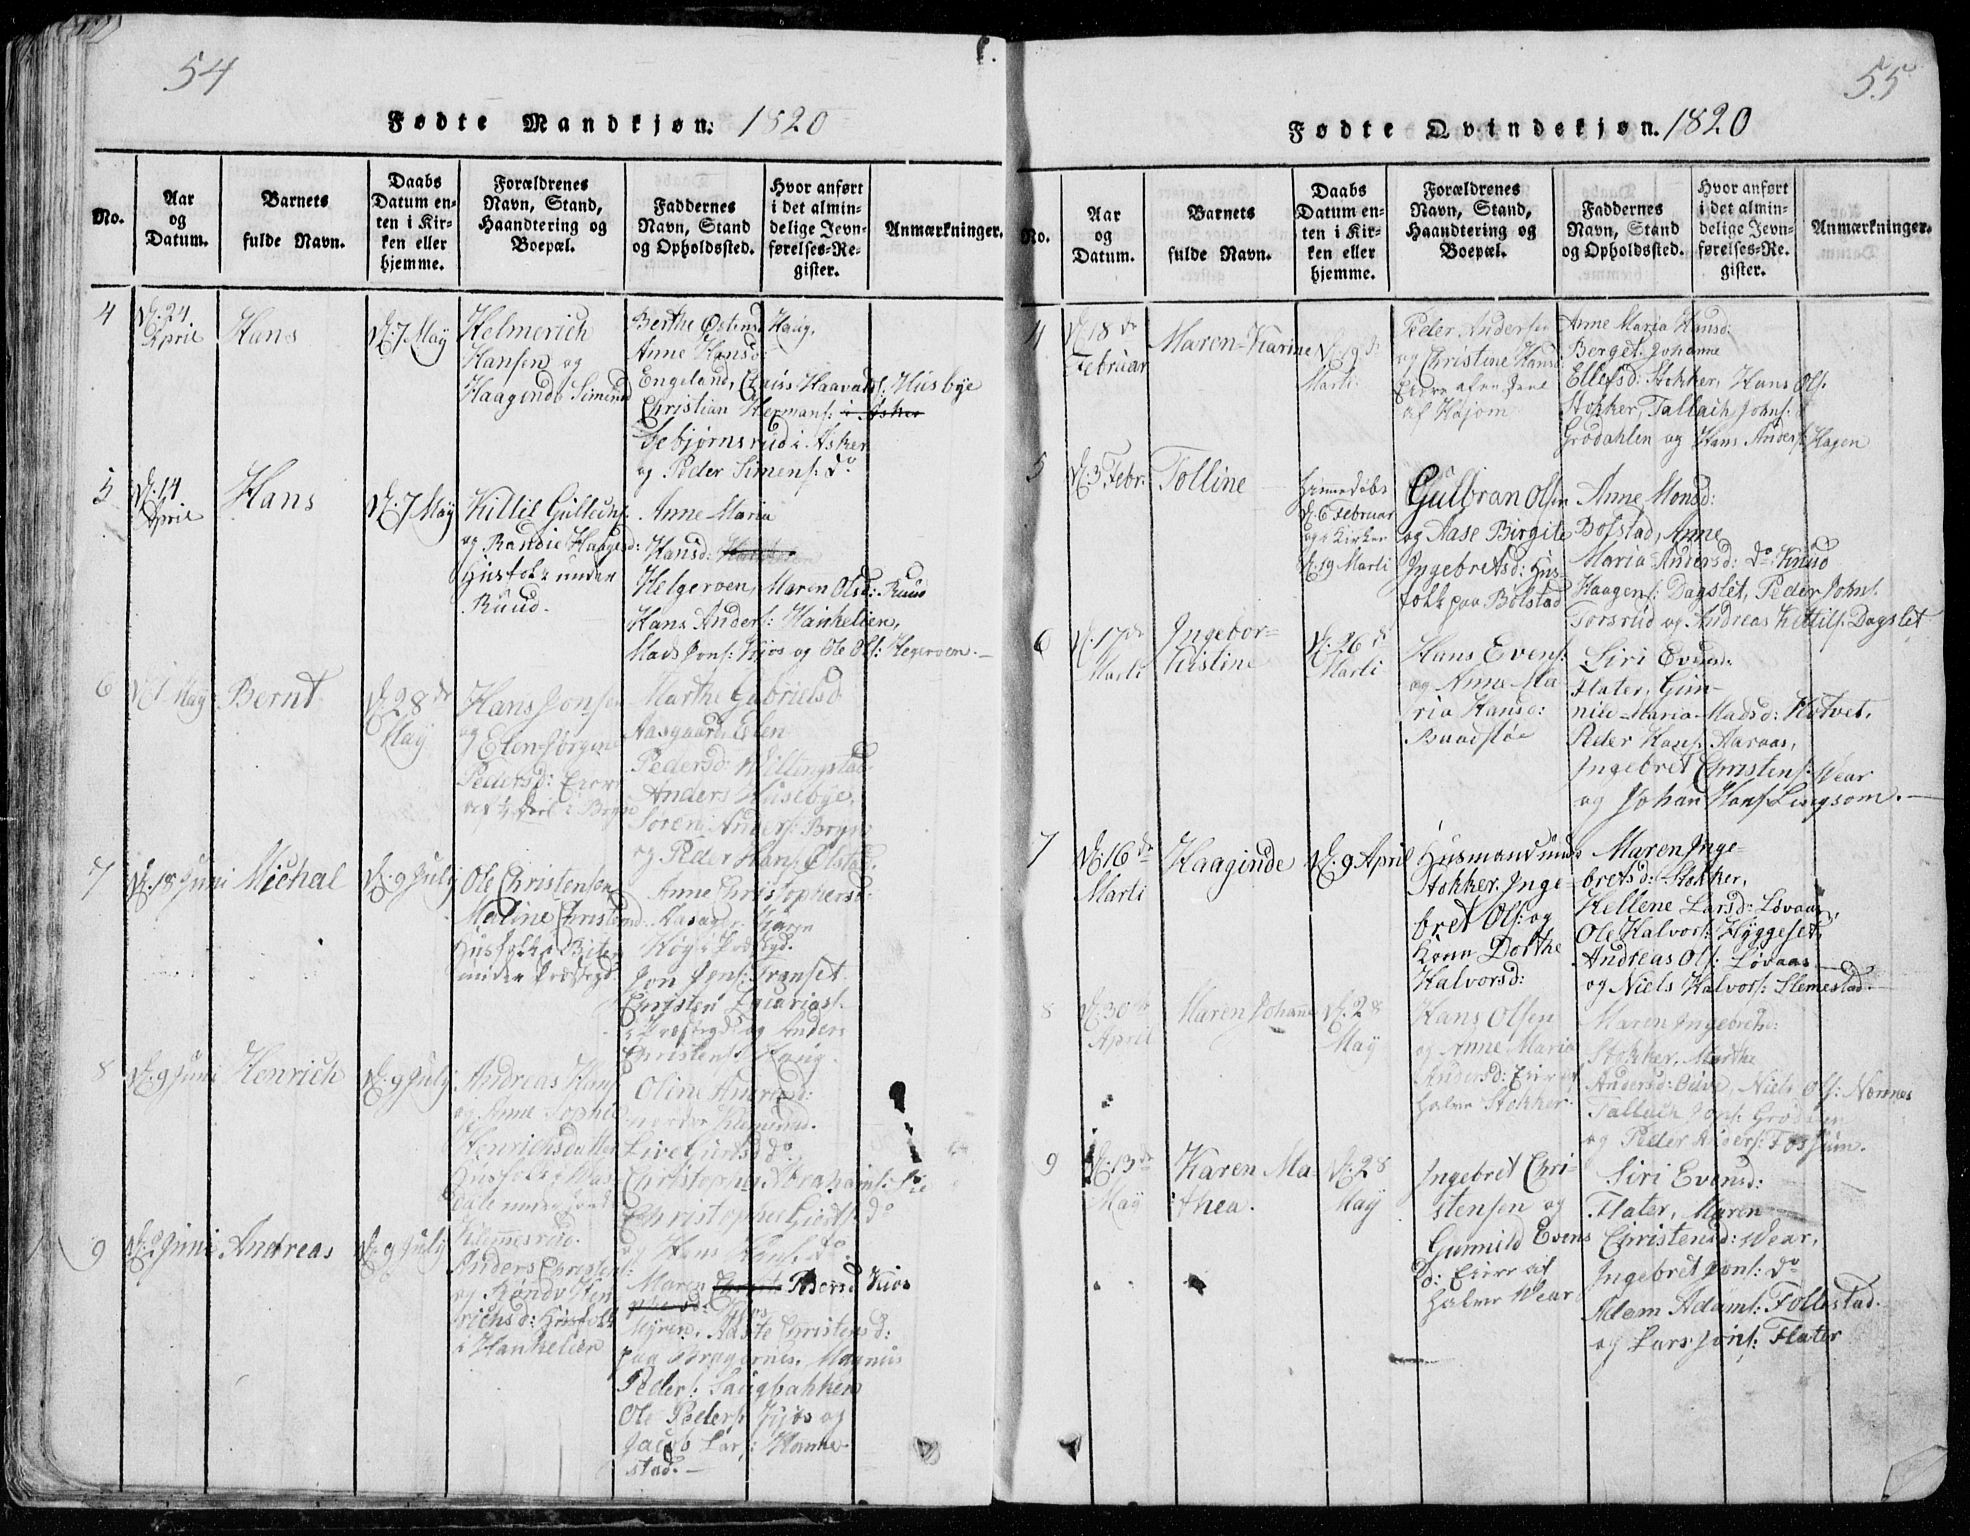 54
Fødte Mandkjøn. 1820
No.
Aar
og
Datum.
Barnets
fulde Navn.
Daabs
Datum en-
ten i Kir-
ken eller
hjemme.
Forældrenes
Navn, Stand,
Haandtering og
Boepæl.
Faddernes
Navn, Stand
og Opholdssted.
Hvor anført
i det almin-
delige Jevn-
førelses-Re-
gister.
Anmærkninger.
4
24
April
Hans
7 May
Helmerich
Hansen og
Haagende Simensd
Berthe Østensd Haug,
Anne Hansd:
Engeland, Claus Haavalds: Husbye
Christian Hermans: i Asker
Gebjørnsrud i Asker
og Peder Simens: do
5
14
April
Hans
7 May
Killil Gulluchs
og Randie Haagensd:
Husfolk under
Ruud.
Anne Maria
Hansd:
Helgeroen, Maren Olsd: Ruud
Hans Anders: Hankelien,
Mads Jons: Kjos og Ole Ols: Hegeroen.
6
1 May
Bernt
28de
May
Hans Jonsen
og Elen Jørgine
Pedersd: Eiere
Marthe Gabrielsd
Aasgaard, Elen
Pedersd: Willingstad
Anders Husebye,
Søren Anders: Bryn
og Peder Hans: Elstad.
7
18 Juni
Michal
9 July
Ole Christensen
Maline Christensd
Husfolk i Biter
under Præstegd
Anne Christophersd:
Aasager, Karen
Høg i Præstgd.
Jon Jons: Transet
Christen Zacarias:
i Præstegd og Anders
Christens: Haug.
8
9 Juni
Henrich
9 July
Andreas Hans
og Anne Sophie
Henrichsdatter
Klemmesrud.
Oline Amundsd:
nordre Klemsrud.
Live Giertsd do
Christopher Abrahams:
Christopher Gierts: do
og Hans Hans: do
9
2 Juni
Andreas
9 July
Anders Christens:
og Randi Hen
richsd: Husfolk
i Hankelien
Maren Kios
Myren, Aaste Christensd:
paa Bragernes, Magnus
Peders: Saugbakken
Ole Peders: Kjos og
Jacob Lars: Hanne-
stad.
55
Fødte Qvindekjøn. 1820
No.
Aar
og
Datum.
Barnets
fulde Navn.
Daabs
Datum en-
ten i Kir-
ken eller
hjemme.
Forældrenes
Navn, Stand,
Haandtering og
Boepæl.
Faddernes
Navn, Stand
og Opholdssted.
Hvor anført
i det almin-
delige Jevn-
førelses-Re-
gister.
Anmærkninger.
4
18de
Februar
Maren Karine
19de
Marti
Peder Andersen
og Christine Hansd:
Anne Maria Hansd:
Berget, Johanne
Ellefsd: Stokker, Hans Ols:
Stokker, Tallach Johns:
Grødahlen og Hans Anders: Hagen
5
3 Febr.
Tolline
hjemedøbt
6 Februar
og i Kirken
19 Marti
Gulbran Olsen
og Aase Birgite
Ingebretsd: Hus-
folk paa Bolstad
Anne Monsd:
Bolstad, Anne
Maria Andersd: do Knud
Haagens: Dagslet, Peder Johns:
Torsrud og Andreas Kittils: Dagslet
6
17de
Marti
Ingebor-
Kistine
26de
Marti
Hans Evens:
og Anne Ma
ria Hansd:
Siri Evensd:
Flater, Gun-
nild Maria Madsd: Hotvet,
Peder Hans: Haraas,
Ingebret Christens: Wear
og Johan Hans: Lingsom.
7
16de
Marti
Haaginde
9 April
Husmand under
Stokker Inge-
bret Ols: og
Kone Dorthe
Halvorsd:
Maren Inge-
bretsd: Stokker,
Kellene Larsd: Løvaas,
Ole Halvors: Hyggeset,
Andreas Ols: Løvaas
og Niels Halvors: Slemestad.
8
30te
April
Maren Johanne
28
May
Hans Olsen
og Anne Maria
Andersd: Eier af
halve Stokker
Maren Ingebretsd:
Stokker, Marthe
Andersd: Niels Ols: Nærnes
Tallach Jons: Grødalen
og Peder Anders: Fossum.
9
13de
May
Karen Ma-
thea.
28
May
Ingebret Chri-
stensen og
Gunnild Evens
D: Eiere af
halve Wear
Siri Evensd:
Flater, Maren
Christensd: Wear,
Ingebret Jons: do
Adam Adams: Follestad.
og Lars Jons: Flater